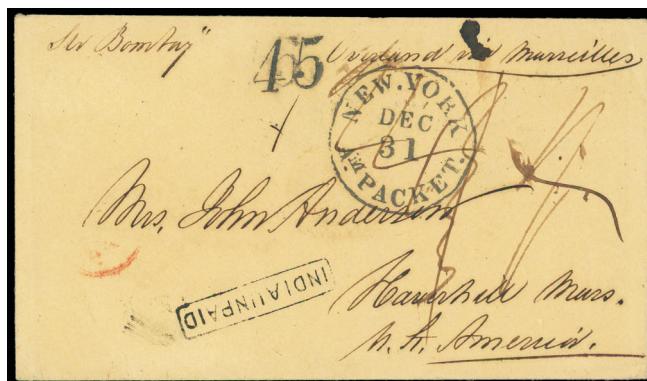 Str Bombay"
45
Overland via Marseilles
NEW.YORK
DEC
31
AM. PACKET.
Mrs, John Anderson
INDIA UNPAID
Haverhill Mass.
N. A. America.